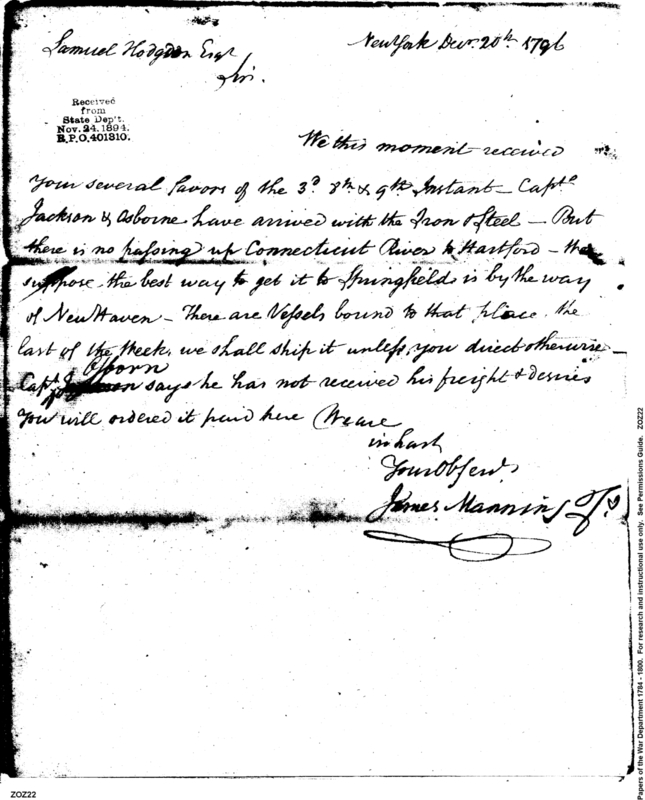 Samuel Hodgdon Esqr
New York Decr. 20th 1796
Sir.
Received
from
State Dep't.
Nov. 24. 1894.
R.P.O. 401310.
We this moment received
Your several favors of the 3d 8th & 9th Instant — Capts
Jackson & Osborne have arrived with the Iron & Steel — But
there is no passing up Connecticut River to Hartford — We
suppose the best way to get it to Springfield is by the way
of New Haven — There are Vessels bound to that place the
last of the Week, we shall ship it unless you direct otherwise —
Osborn
Capt. says he has not received his freight & desires
You will ordered it paid here We are
in hast
Your Obser.
James Manning
ZOZ22
Papers of the War Department 1784 - 1800. For research and instructional use only. See Permissions Guide. ZOZ22